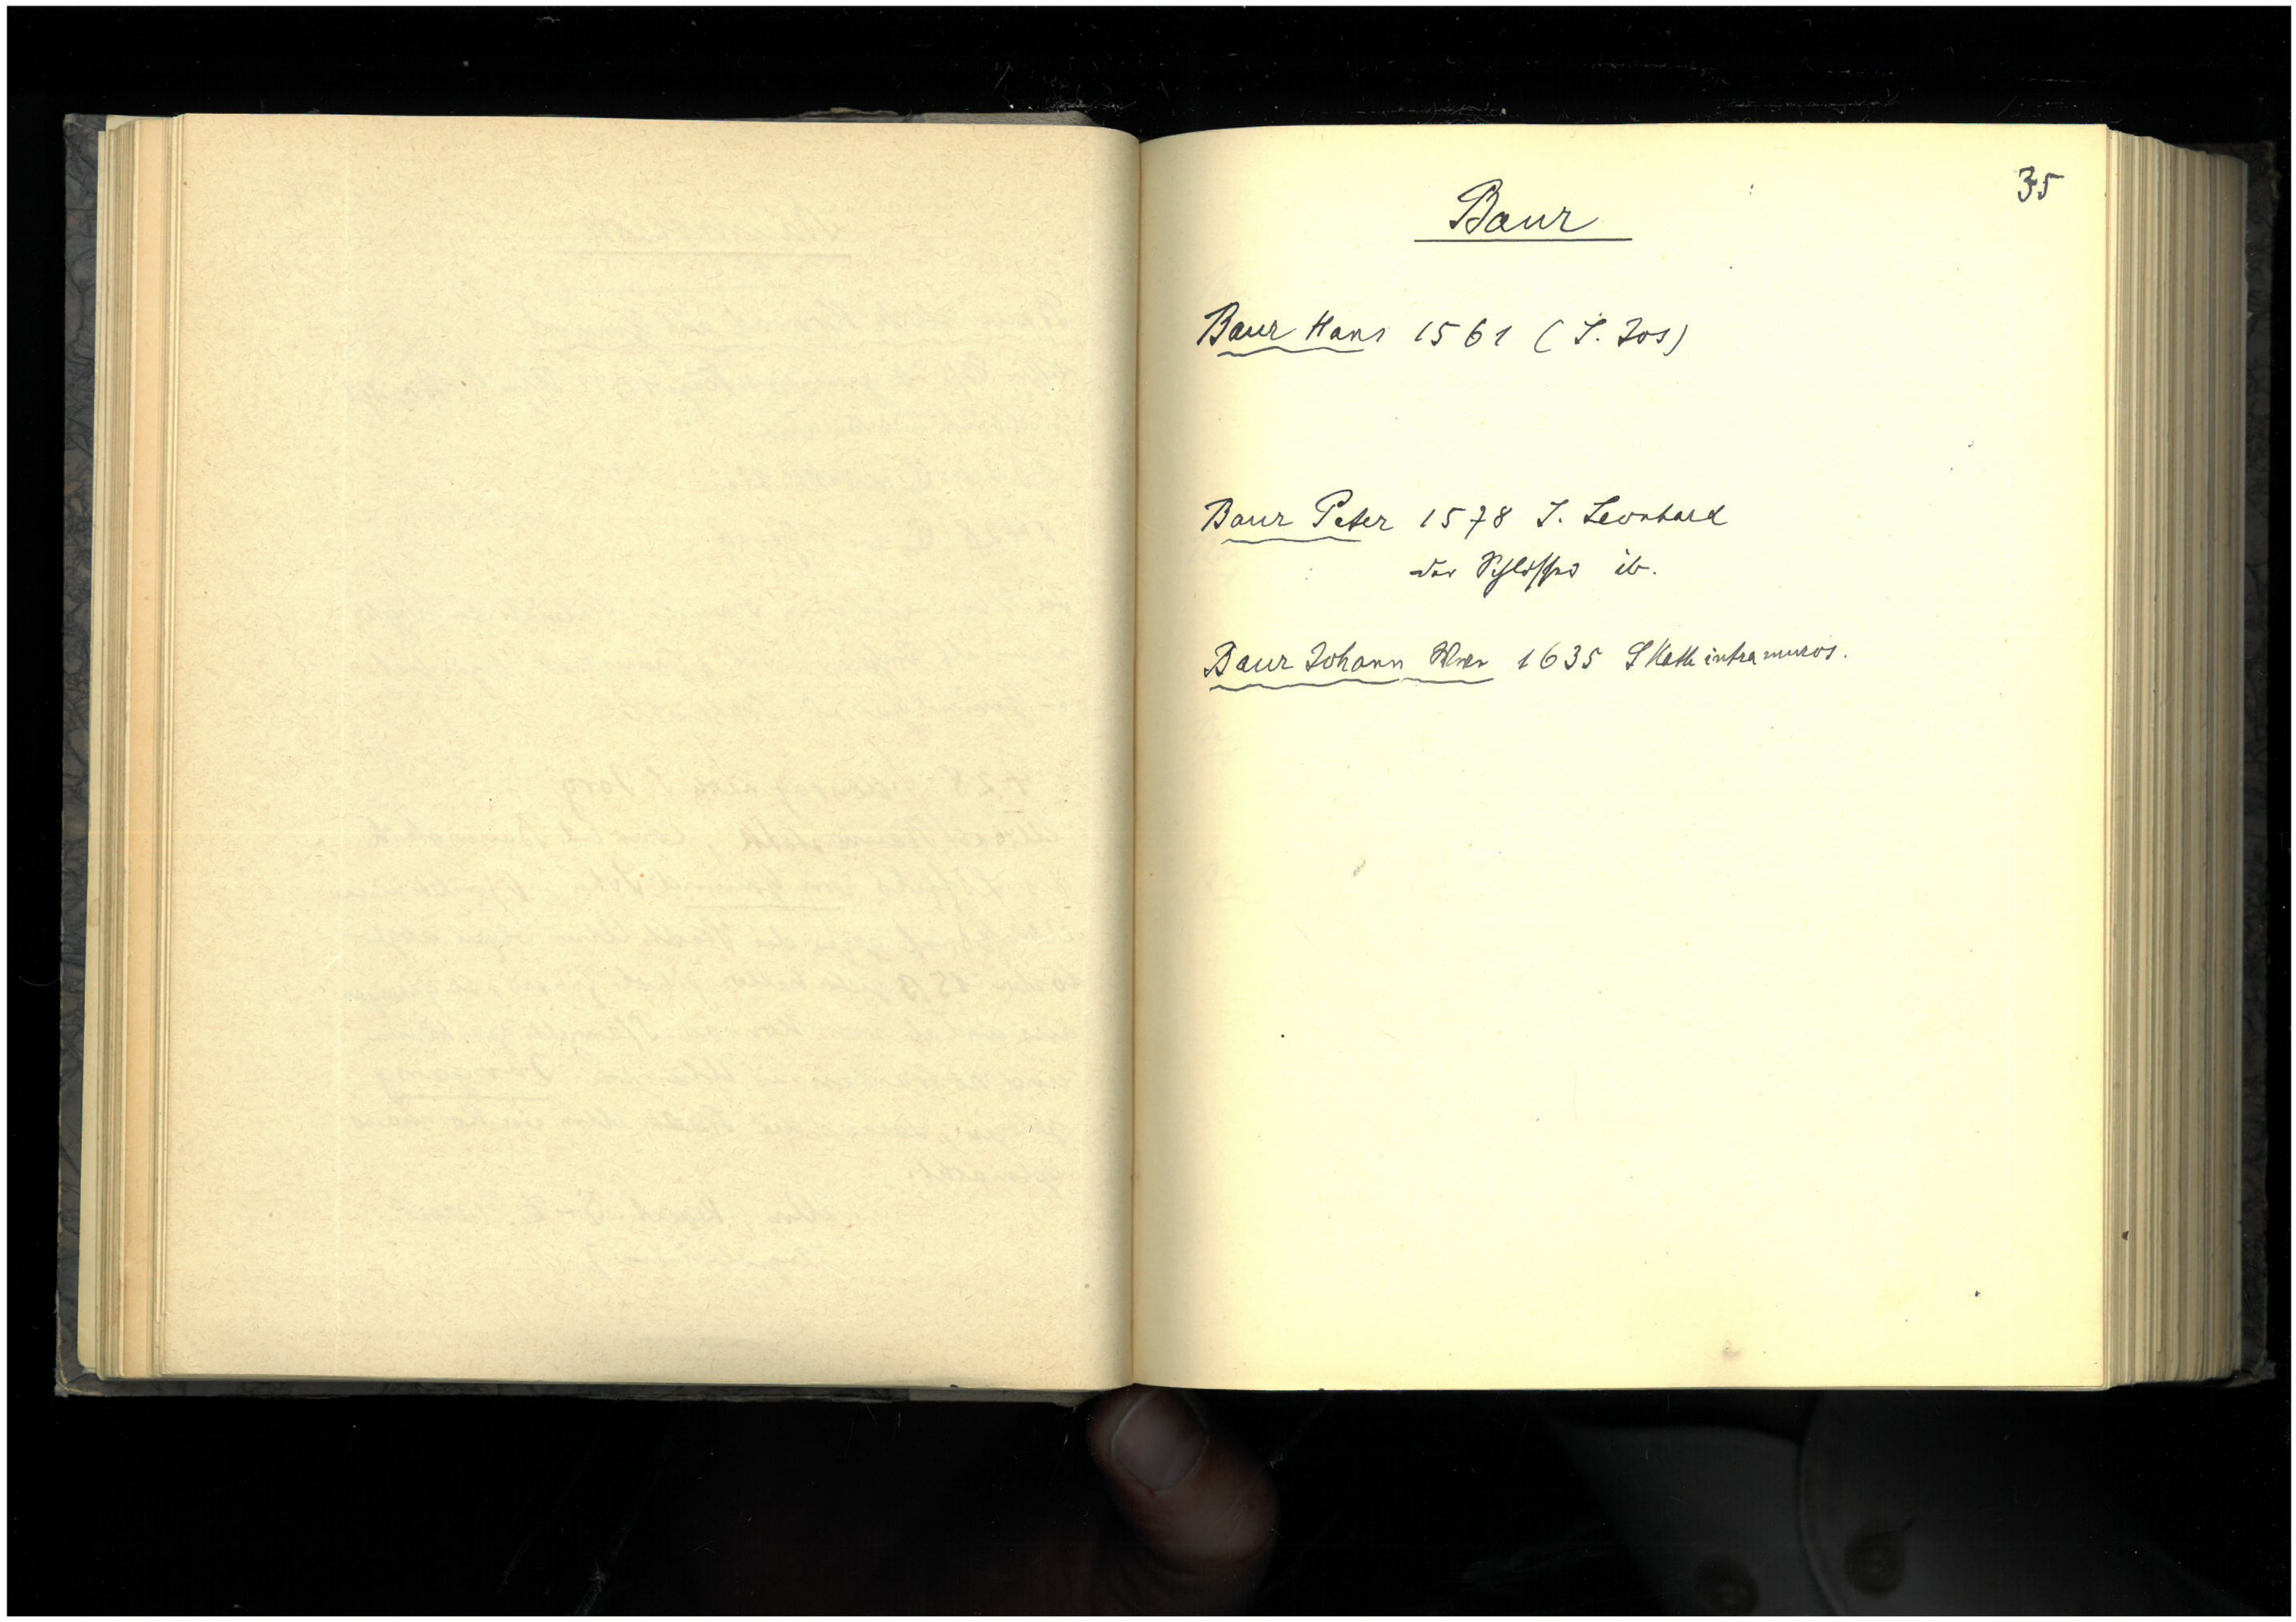 35
Baur
Baur Hans 1561 (S. Jos)
Baur Peter 1578 S. Leonhard
der Schlosser ib.
Baur Johann 1635 S Kath intra muros.